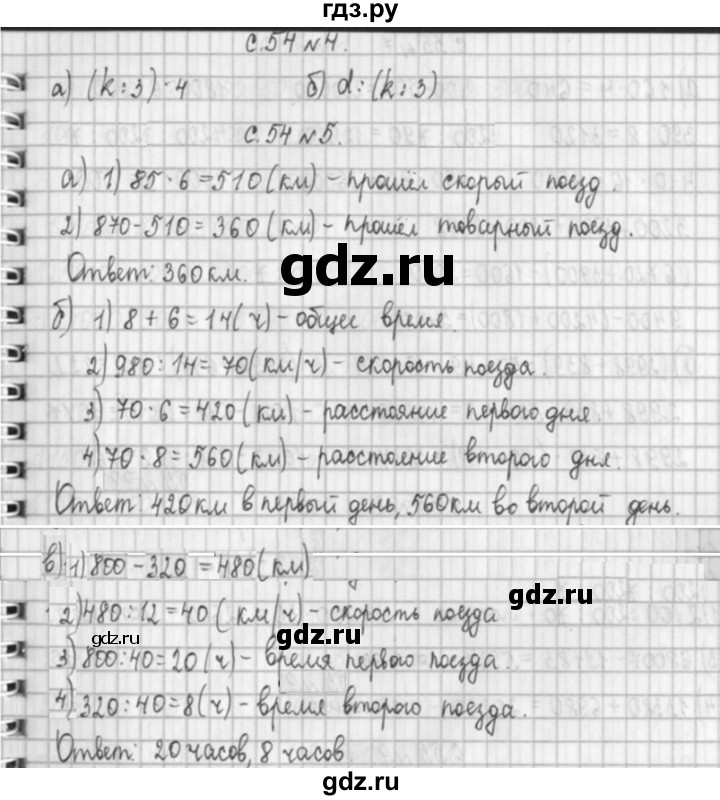 гдз.ру
с.54 №4.
а) (k:3)·4 б) d:(k:3)
с.54 №5.
а) 1) 85·6=510(км) - прошёл скорый поезд.
2) 870-510=360(км) - прошёл товарный поезд.
Ответ: 360км.
gdz.ru
б) 1) 8+6=14(ч) - общее время.
2) 980:14=70(км/ч) - скорость поезда.
3) 70·6=420(км) - расстояние первого дня
4) 70·8=560(км) - расстояние второго дня.
Ответ: 420км в первый день, 560км во второй день.
в) 1) 800-320=480(км)
2) 480:12=40(км/ч) - скорость поезда
gdz.ru gdz.ru
3) 800:40=20(ч) - время первого поезда.
4) 320:40=8(ч) - время второго поезда.
Ответ: 20 часов, 8 часов.
gdz.ru